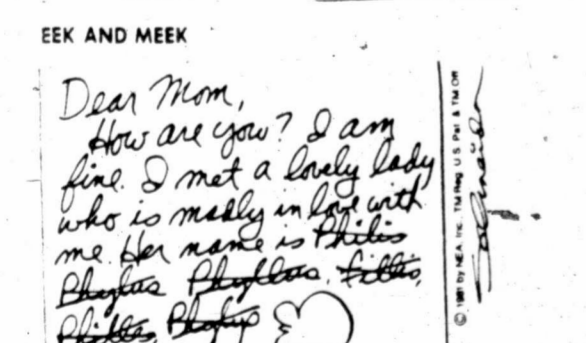 EEK AND MEEK
Dear Mom,
How are you? I am
fine. I met a lovely lady
who is madly in love with
me. Her name is Philis
Phyllus, fillis,
© 1981 by NEA, Inc., TM Reg. U.S. Pat. & TM Off.